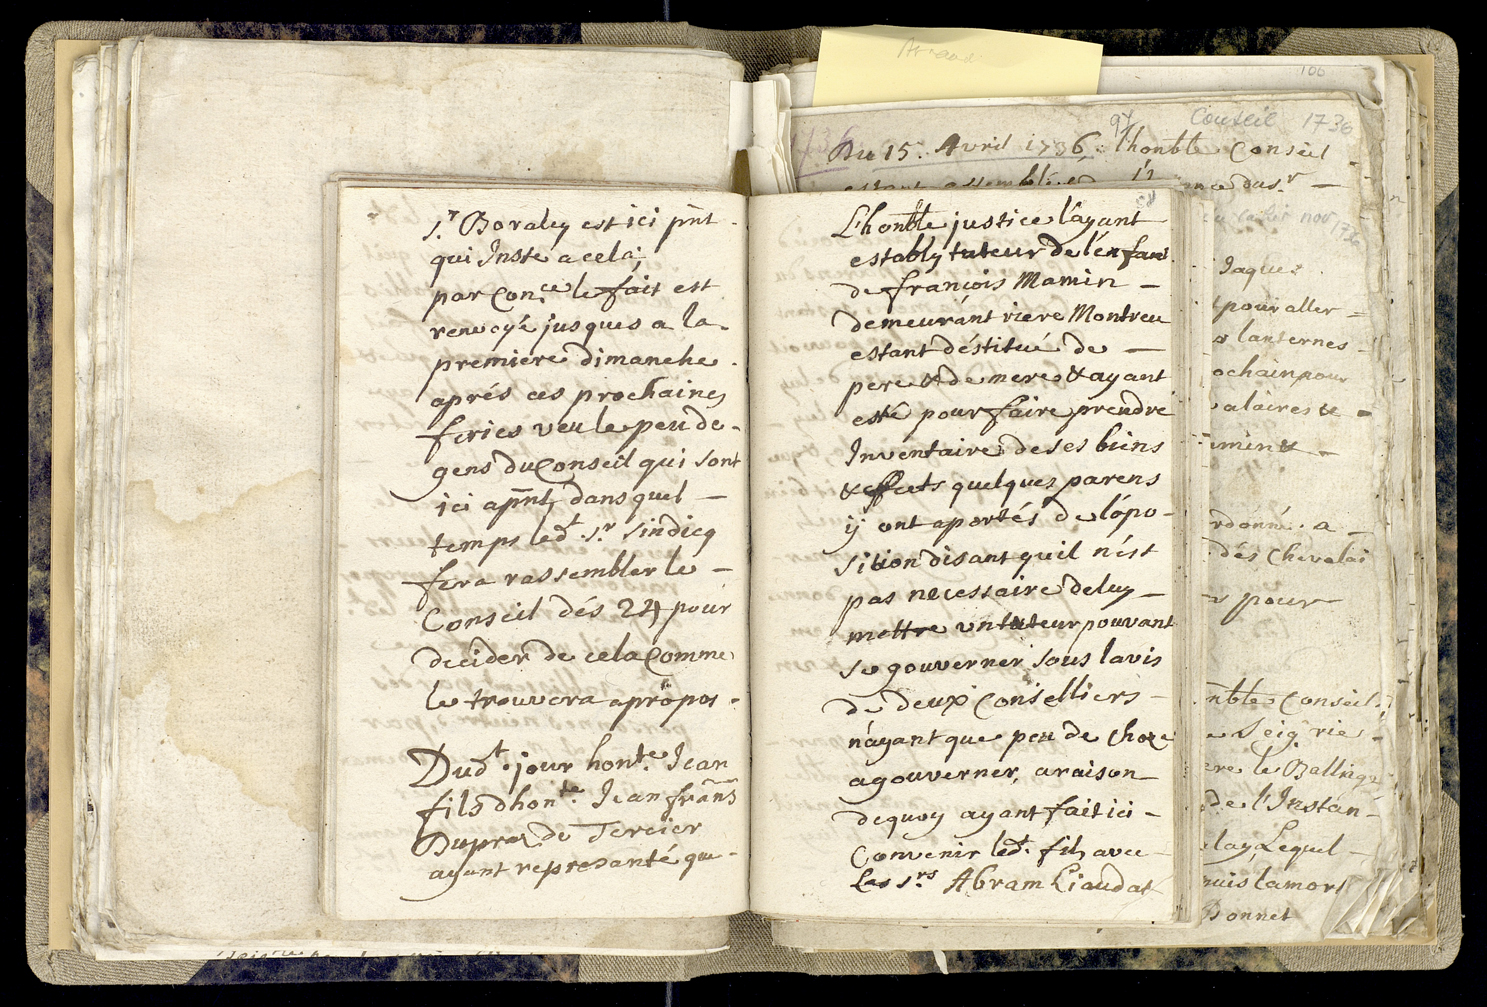 S.r Boraley est ici pñt
qui Inste a cela,
par Con.ce le fait est
renvoyé jusques a la
premiere dimanche
aprés ces prochaines
feries veu le peu de
gens du Conseil qui sont
ici apñt, dans quel
temps led.t S.r Sindicq
fera rassembler le
Conseil dés 24 pour
decider de cela Comme
le trouvera apropos.
Dud.t jour hon.te Jean
fils dhon.te Jean frañs
Dupraz de Tercier
ayant represanté que
L'honble justice l'ayant
estably tuteur de l'enfant
de françois Mamin
demeurant riere Montreu
estant déstitué de
pere & de mere & ayant
esté pour faire prendre
Inventaire de ses biens
& effects quelques parens
ij ont aportés de l'opo-
sition disant quil n'est
pas necessaire de luy
mettre un tuteur pouvant
se gouverner sous lavis
de deux Conselliers
n'ayant que peu de choze
agouverner, araison
dequoy ayant fait ici
Convenir led.t fils avec
Les S.rs Abram Liaudat
106
97
Conseil 1736
Du 15. Avril 1736. l'honble Conseil
estant assemblé
nov 1736
Jaques
pour aller
lanternes
ochain pour
alaires &
rdonné. a
dés Chevalai
pour
nble Conseil
Seig.rie
le Ballingz
de l'Instan-
lay Lequel
puis lamort
Bonnet